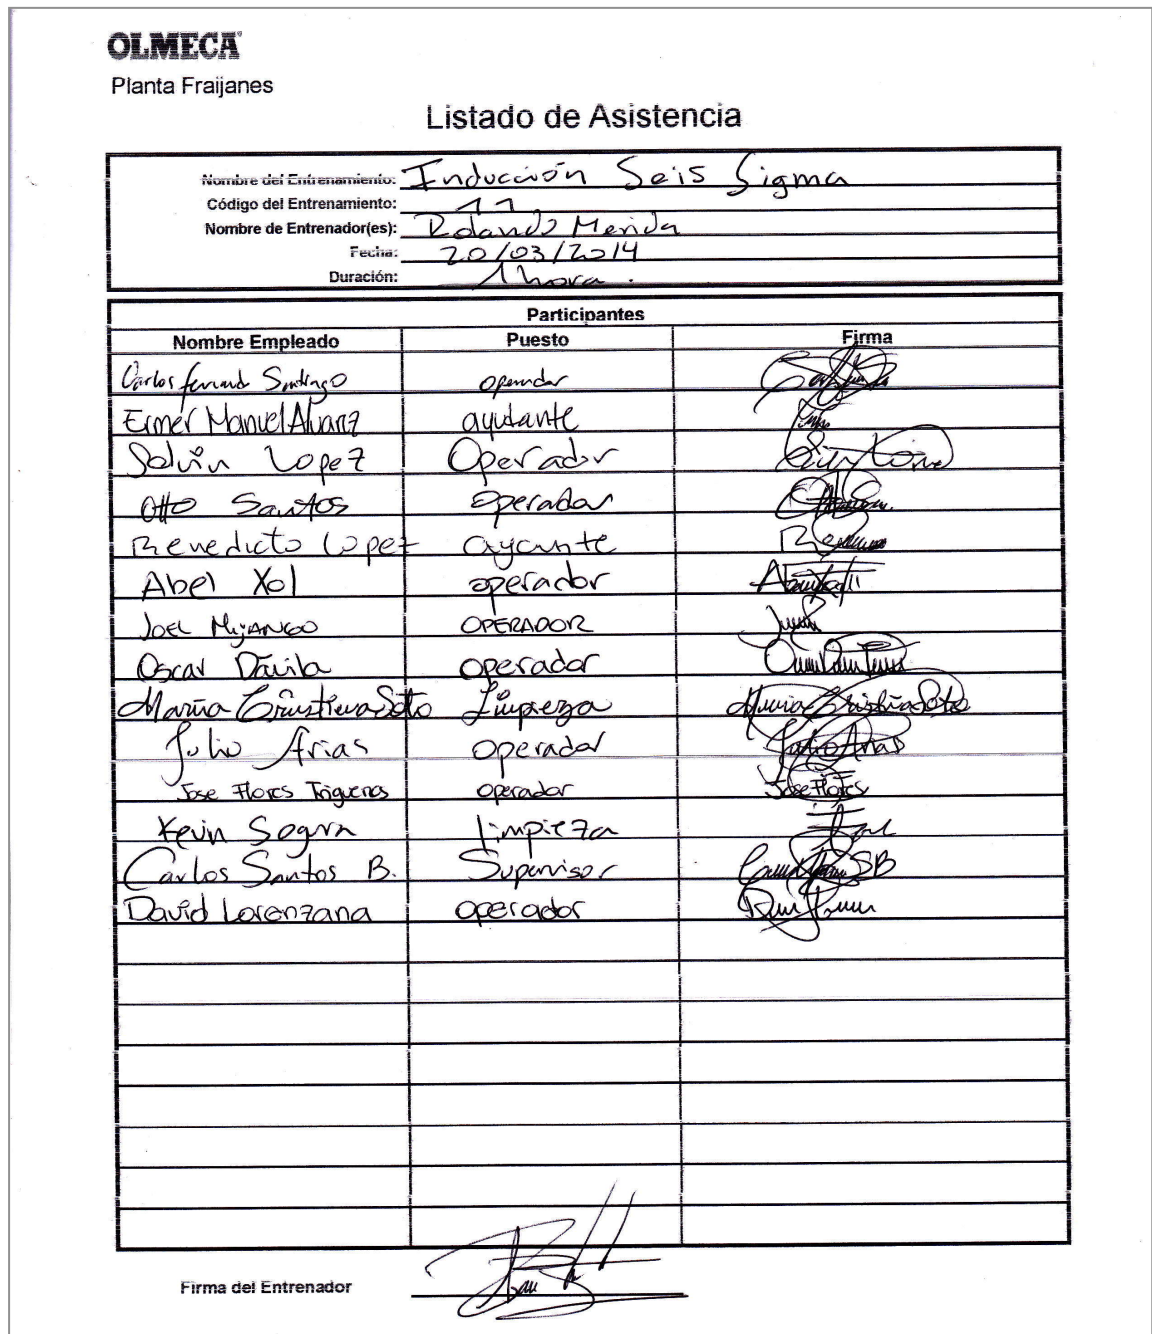 OLMECA
Planta Fraijanes
Listado de Asistencia
Nombre del Entrenamiento: Inducción Seis Sigma
Código del Entrenamiento: 11
Nombre de Entrenador(es): Rolando Merida
Fecha: 20/03/2014
Duración: 1 hora.
Participantes
Nombre Empleado Puesto Firma
Carlos fernand Santiago operador
Ermer Manuel Alvarez ayudante
Selvin Lopez Operador
Otto Santos operador
Benedicto Lopez
Abel Xol operador
JOEL MIJANGO OPERADOR
Oscar Dávila operador
Maria Cristina Soto Limpieza Maria Cristina Soto
Julio Arias operador Julio Arias
Jose Flores Trigueros operador Jose Flores
Kevin Segura limpieza
Carlos Santos B. Supervisor SB
David Lorenzana operador
Firma del Entrenador